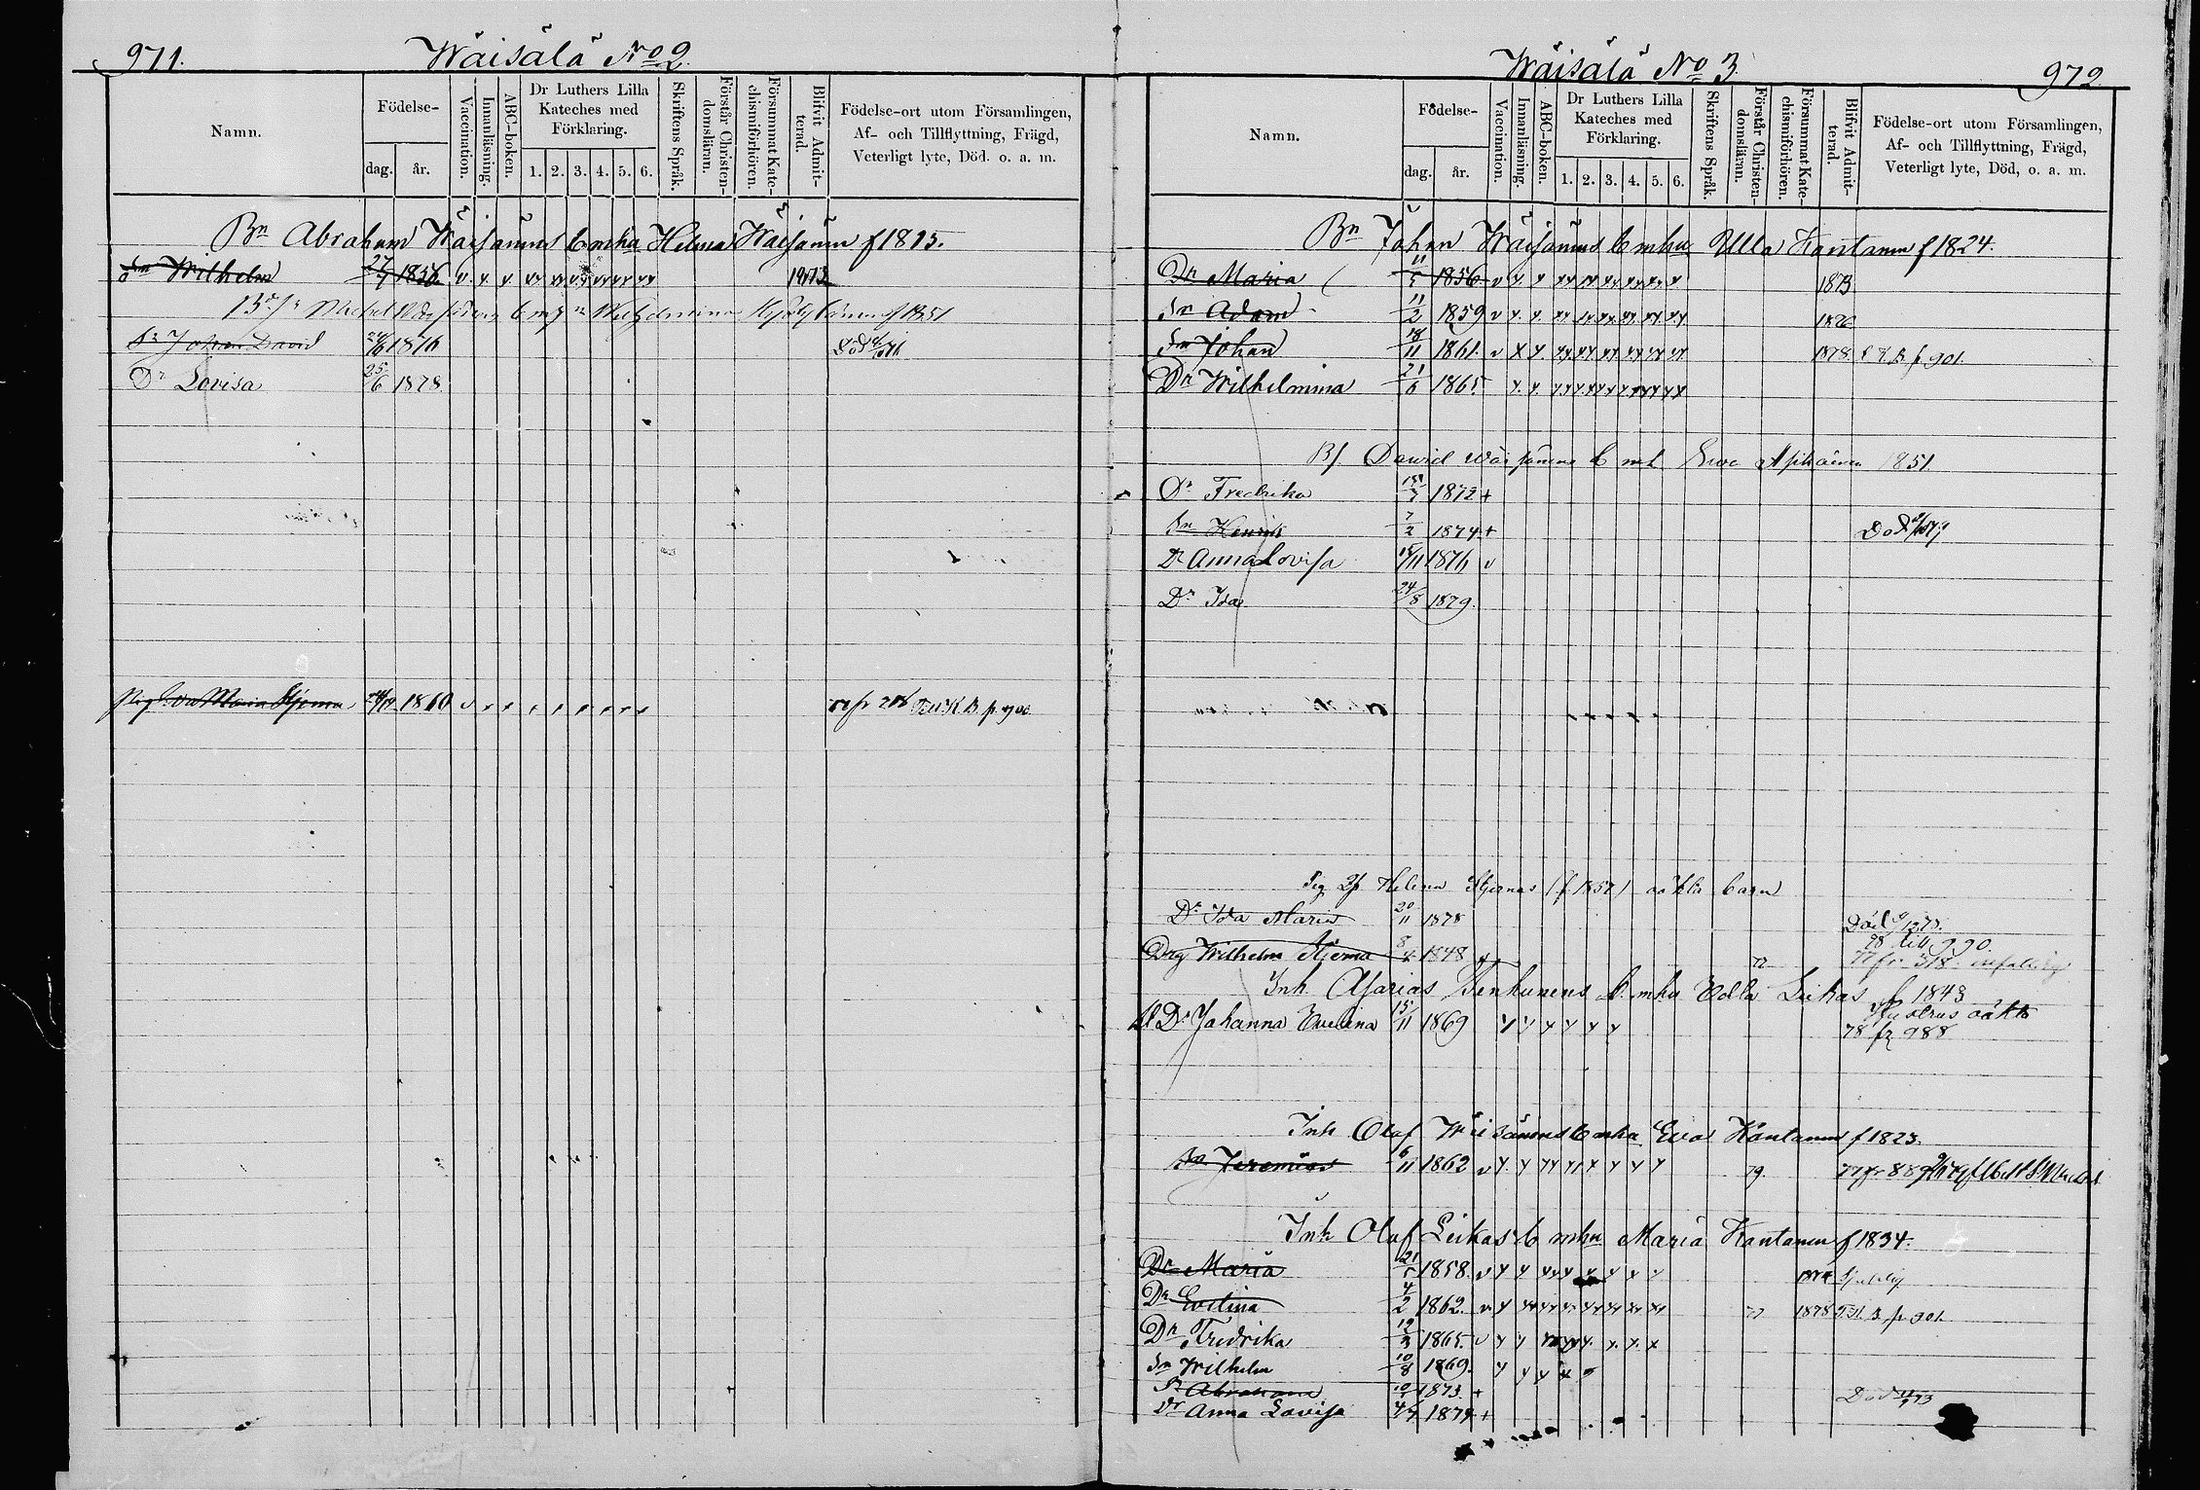 971. Wäisälä No 2.
Namn.
Födelse-
dag. år.
Vaccination.
Innanläsning.
ABC-boken.
Dr Luthers Lilla Kateches med Förklaring.
1. 2. 3. 4. 5. 6.
Skriftens Språk.
Förstår Christendomsläran.
Försummat Katechismiförhören.
Blifvit Admitterad.
Födelse-ort utom Församlingen, Af- och Tillflyttning, Frägd, Veterligt lyte, Död. o. a. m.
Bn Abraham Wäisänens b mhu Helena Wäisänen f 1813.
Sn Wilhelm 27/7 1856 v
Sn Johan David 24/6 1876 Död
Dr Lovisa 25/6 1878.
Maria Stjerna 1860 v p. 900
Wäisälä No 3. 972
Namn.
Födelse-
dag. år.
Vaccination.
Innanläsning.
ABC-boken.
Dr Luthers Lilla Kateches med Förklaring.
1. 2. 3. 4. 5. 6.
Skriftens Språk.
Förstår Christendomsläran.
Försummat Katechismiförhören.
Blifvit Admitterad.
Födelse-ort utom Församlingen, Af- och Tillflyttning, Frägd, Veterligt lyte, Död, o. a. m.
Bn Johan Wäisänens b mhu Ulla Kantanen f 1824.
Dr Maria 11/5 1856 v 1873
Sn Adam 11/2 1859 v 1876
Sn Johan 18/11 1861. v 1878 p. 901.
Dr Wilhelmina 21/6 1865
David Wäisänens b mh Eva 1851
Dr Fredrika 15/7 1872 +
Sn Henrik 7/2 1874 + Död
Dr Anna Lovisa 15/11 1876 v
Dr Ida 24/8 1879.
Helena Stjernas (f. 1852) oäkta barn
Dr Ida Maria 20/11 1878 Död
Drg Wilhelm Stjerna 8/4 1848 78 till 990.
77 fr 518
Inh. Asarias Tenhunens b. mhu Edla Leikas f 1843
Dr Johanna Evelina 15/11 1869 Hustrus oäkta
78 fr 988
Inh Olof Wäisänens b mhu Eva Kantanen f 1823.
Sn Jeremias 6/11 1862 v 79.
Inh Olof Leikas b mhu Maria Kantanen f 1834.
Dr Maria 21/5 1858. v 1874
Dr Evelina 4/2 1862. v 77 1878 p. 901
Dr Fredrika 12/3 1865. v
Sn Wilhelm 10/8 1869.
Sn Abraham 1873. + Död
Dr Anna Lovisa 4/7 1874 +